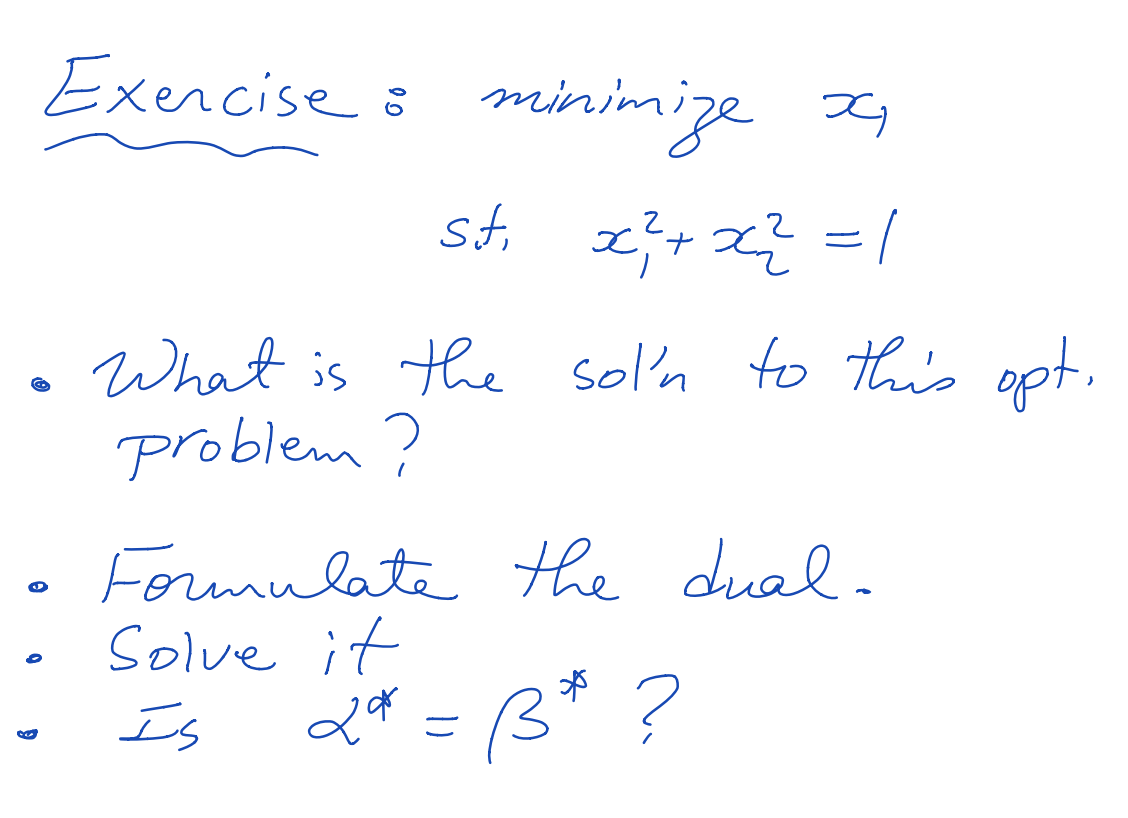 Exercise: minimize x₁
s.t. x₁² + x₂² = 1
• What is the sol'n to this opt.
problem?
• Formulate the dual.
• Solve it
• Is α* = β* ?